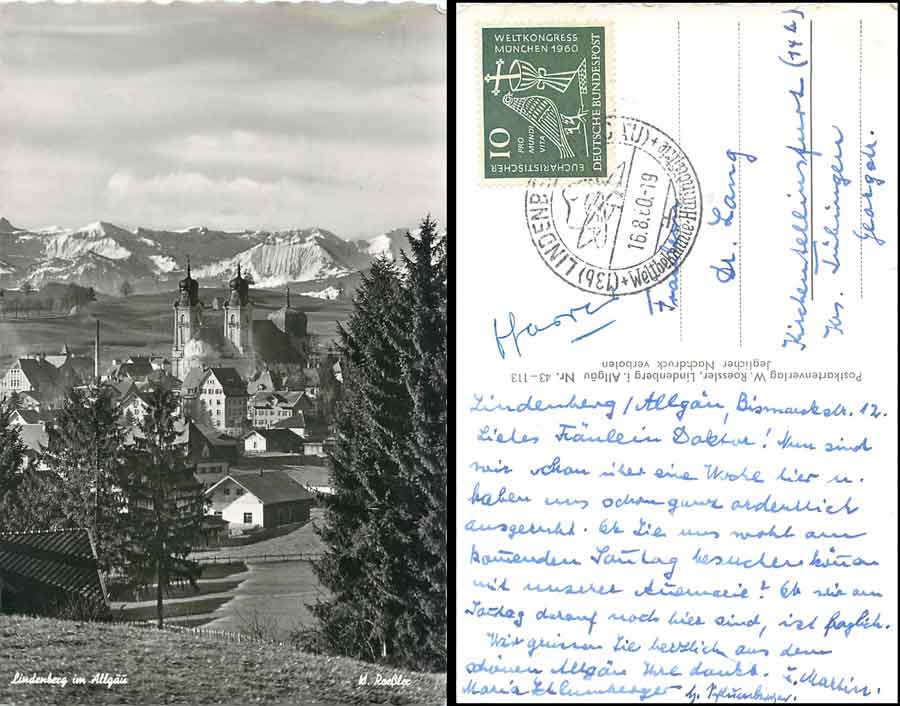 Lindenberg im Allgäu
W. Roeßler
WELTKONGRESS
MÜNCHEN 1960
PRO
MUNDI
VITA
10
EUCHARISTISCHER
DEUTSCHE BUNDESPOST
(13b) LINDENB
16.8.60.-19
Fräulein
Dr. Lang
Kirchentellinsfurt (14b)
Krs. Tübingen
Postkartenverlag W. Roessler, Lindenberg i. Allgäu Nr. 43-113
Jeglicher Nachdruck verboten
Lindenberg/Allgäu, Bismarckstr. 12.
Liebes Fräulein Doktor! Nun sind
wir schon über eine Woche hier u.
haben uns schon ganz ordentlich
ausgeruht. Ob Sie uns wohl am
komenden Sontag besuchen könen
mit unserer Annemarie? Ob wir am
Sontag darauf noch hier sind, ist fraglich.
Wir grüssen Sie herzlich aus dem
schönen Allgäu Ihre dankb.
Martin.
Maria Schlumberger